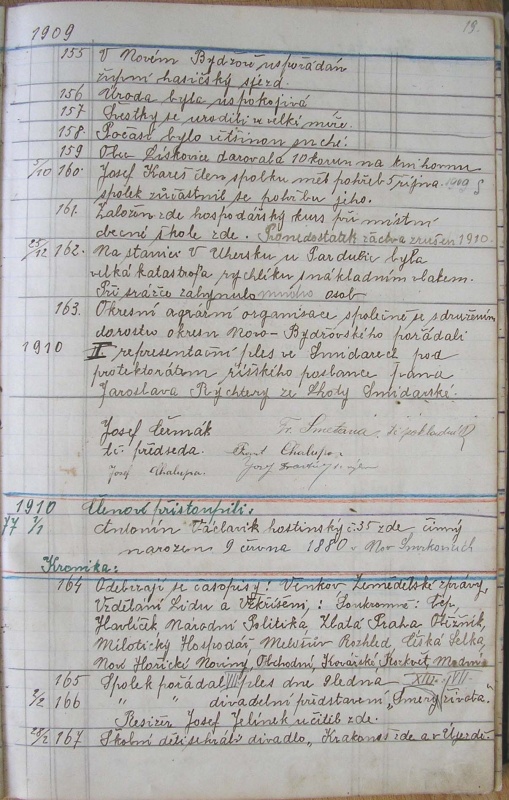 19.
1909
155 V Novém Bydžově uspořádán
župní hasičský sjezd.
156 Úroda byla uspokojivá
157 Švestky se urodili ve velké míře.
158. Počasí bylo většinou suché.
159 Obec Liskovice darovala 10 korun na knihovnu
5/10 160. Josef Kareš člen spolku měl pohřeb 5 října 1909
spolek zúčastnil se pohřbu jeho.
161. Založen zde hospodářský kurs při místní
obecné škole zde. Pro nedostatek žactva zrušen 1910.
25/12 162. Na stanici v Uhersku u Pardubic byla
velká katastrofa rychlíku s nákladním vlakem.
Při srážce zahynulo mnoho osob
163. Okresní agrární organisace společně se sdružením
dorostu okresu Novo-Bydžovského pořádali
1910 I representační ples ve Smidarech pod
protektorátem říšského poslance pana
Jaroslava Rychtery ze Lhoty Smidarské.
Josef Čermák Fr. Smetana, t.č. pokladník
t.č. předseda. Chalupa.
Josef Chalupa.
1910 Členové přistoupili:
77 7/1 Antonín Václavík hostinský č. 35 zde činný
narozen 9 června 1880 v Nov Smrkovicích
Kronika:
164 Odebírají se časopisy: Venkov Zemědělské zprávy,
Vzdělání Lidu a Vzkříšení,: Soukromně:
Havlíček Národní Politika Zlatá Praha
Milotický Hospodář, Rozhled Česká Selka,
Nov Hořické Noviny, Obchodní, Kovářské
165 Spolek pořádal VII ples dne ledna XIII. VII.
2/2 166 " " divadelní představení "Směry života".
Režizér Josef Jelínek učitel zde.
28/2 167 Školní děti sehráli divadlo "Krakonoš zde a v Újezdě.